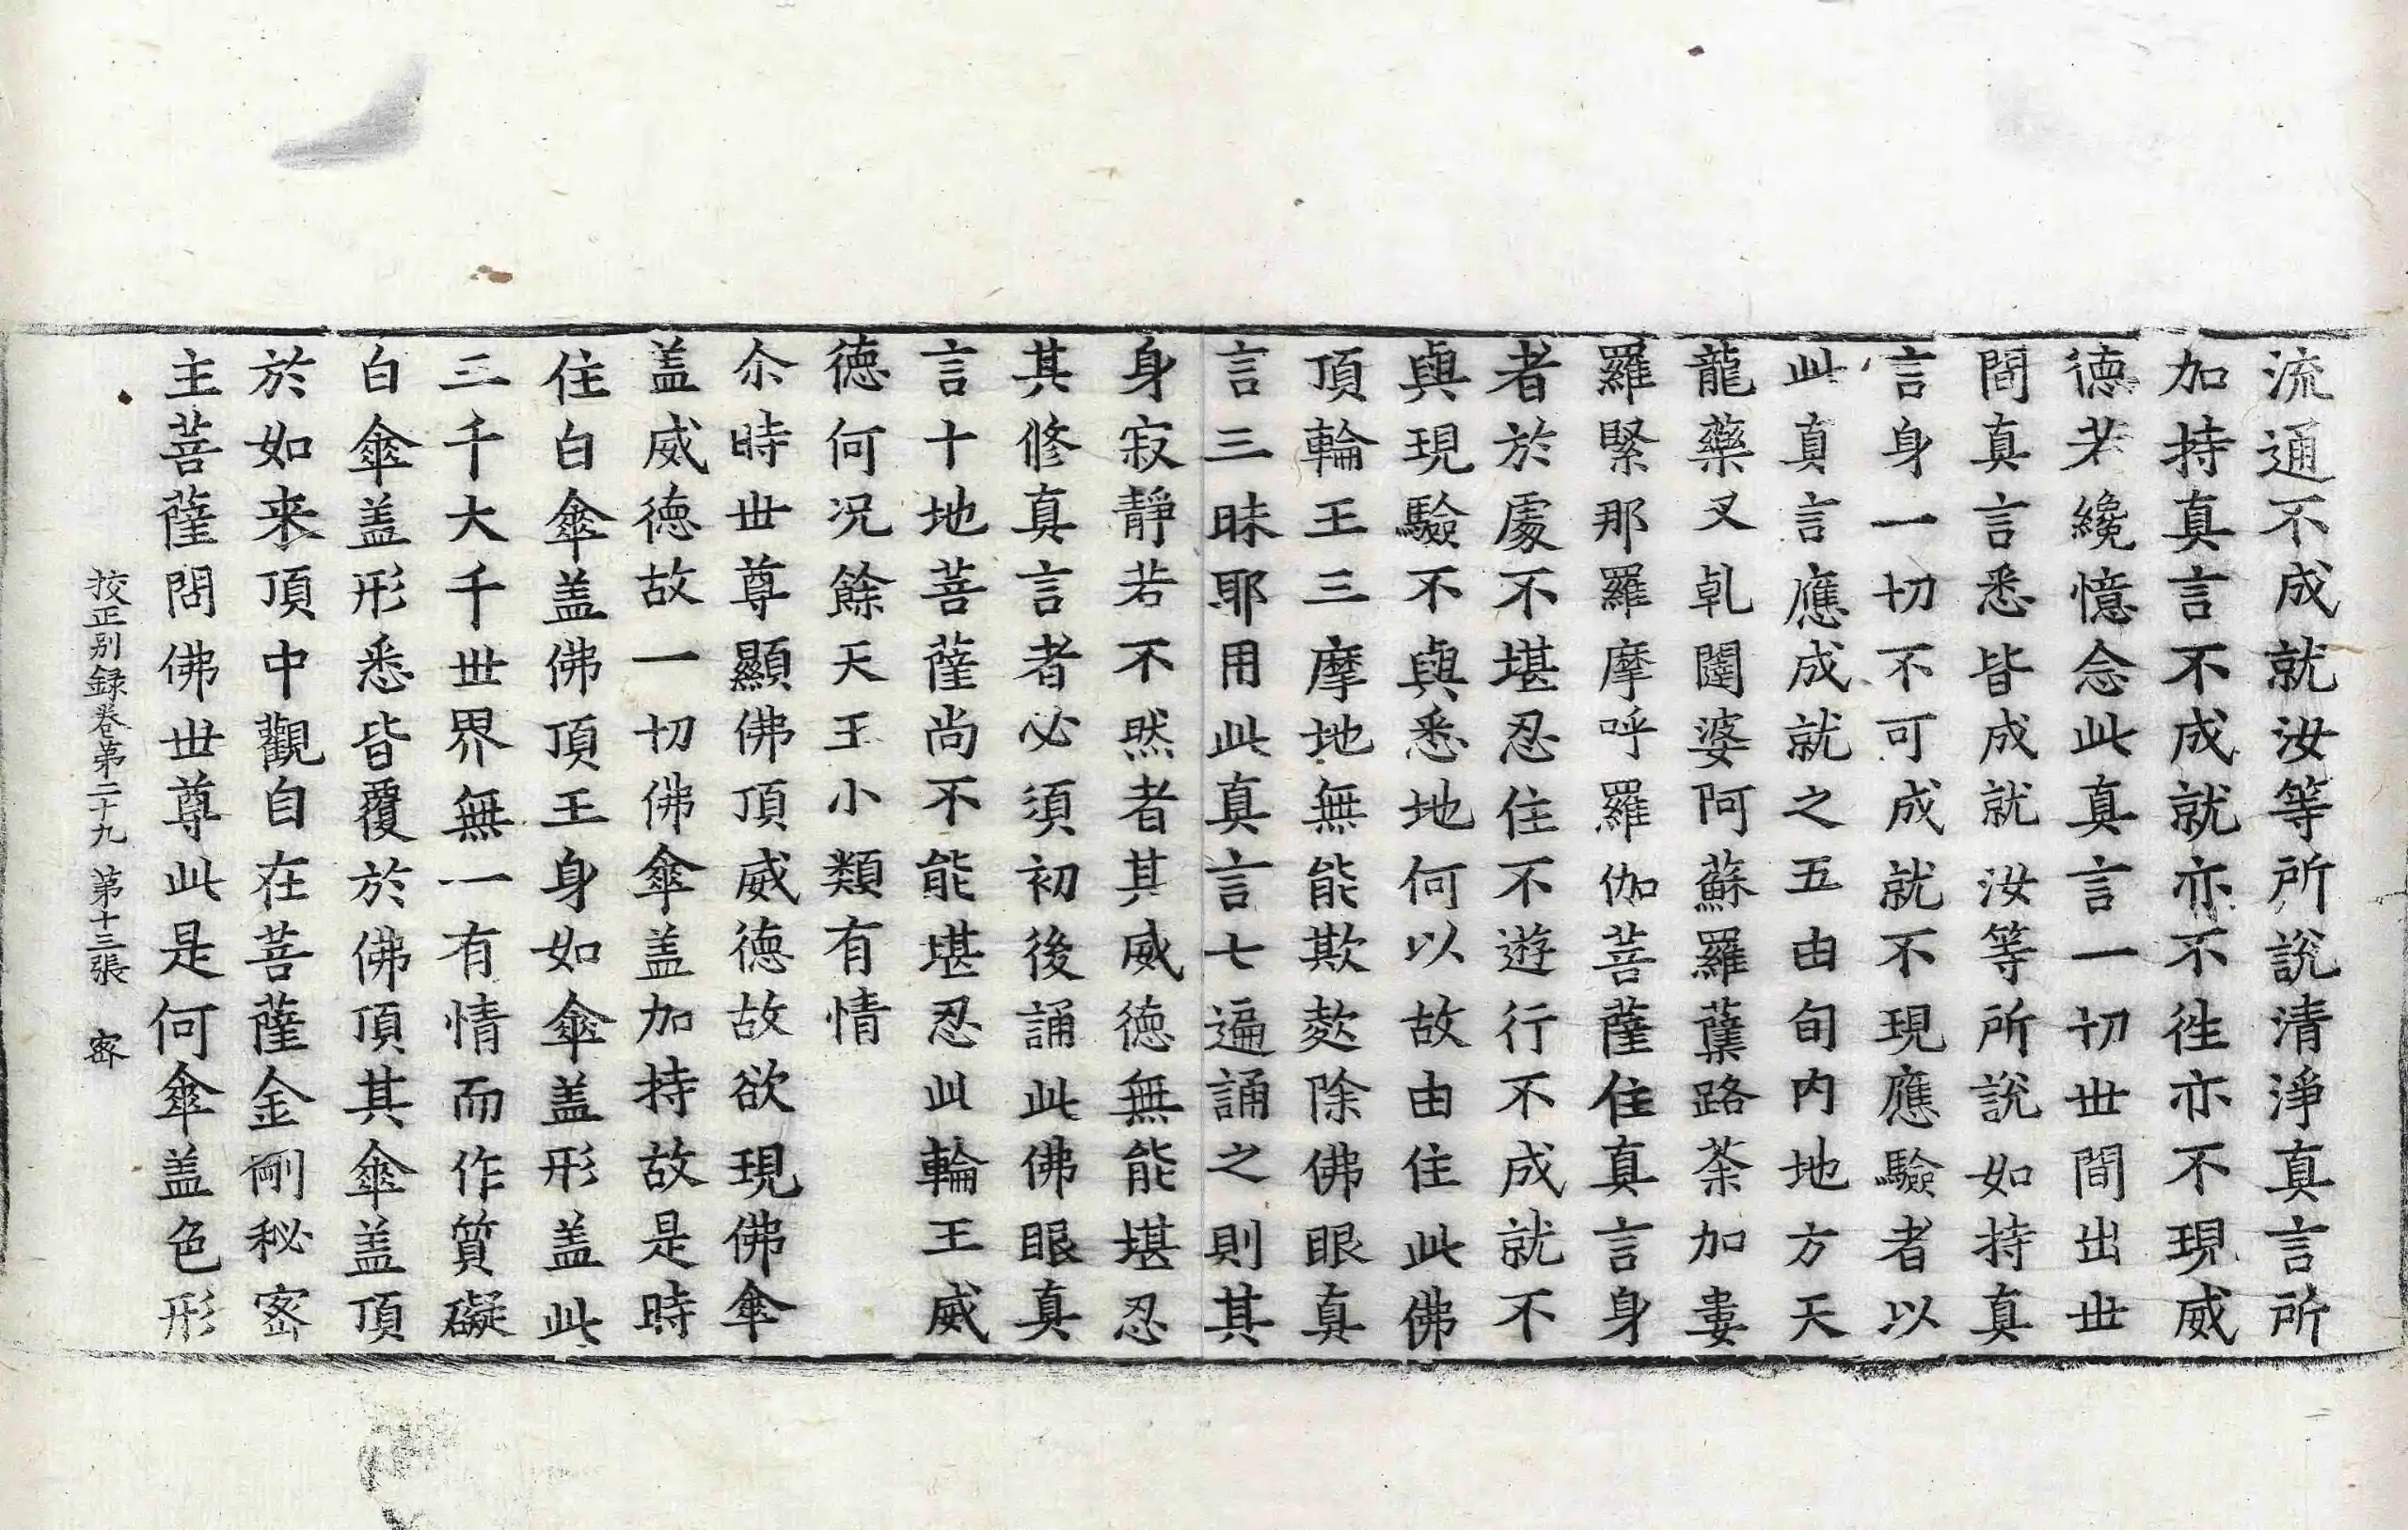 流通不成就汝等所說清淨真言所
加持真言不成就亦不徃亦不現威
徳若纔憶念此真言一切世間出世
間真言悉皆成就汝等所說如持真
言身一切不可成就不現應驗者以
此真言應成就之五由旬内地方天
龍藥叉乹闥婆阿蘇羅蘖路荼加婁
羅緊那羅摩呼羅伽菩薩住真言身
者於處不堪忍住不遊行不成就不
與現驗不與悉地何以故由住此佛
頂輪王三摩地無能欺𣣋除佛眼真
言三昧耶用此真言七遍誦之則其
身寂靜若不然者其威徳無能堪忍
其修真言者必須初後誦此佛眼真
言十地菩薩尚不能堪忍此輪王威
徳何况餘天王小類有情
尒時世尊顯佛頂威徳故欲現佛傘
盖威徳故一切佛傘盖加持故是時
住白傘盖佛頂王身如傘盖形盖此
三千大千世界無一有情而作質礙
白傘盖形悉皆覆於佛頂其傘盖頂
於如来頂中觀自在菩薩金剛秘密
主菩薩問佛世尊此是何傘盖色形
挍正别録卷第二十九 第十三張 密